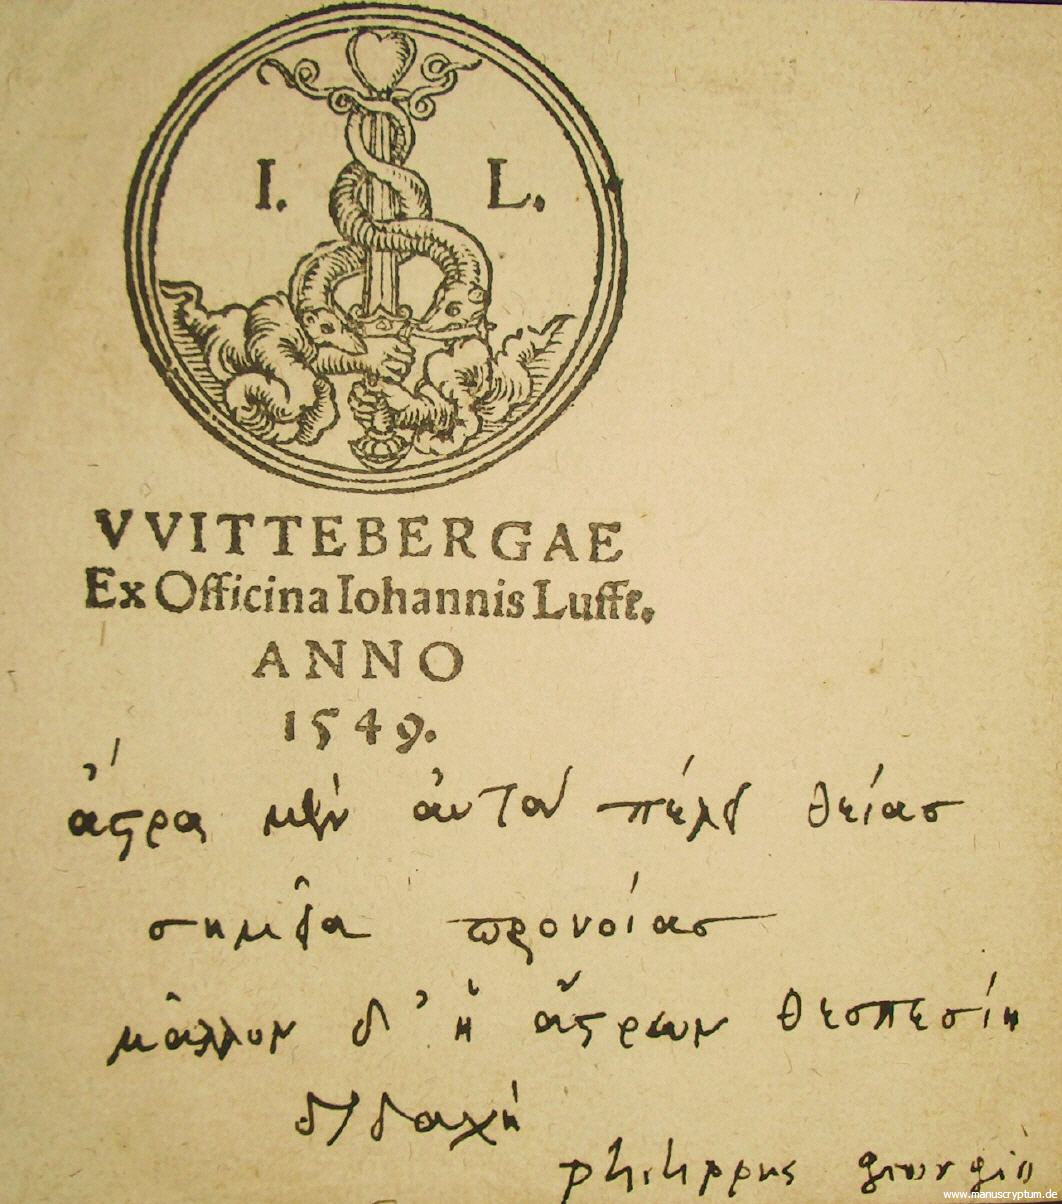 I. L.
VVITTEBERGAE
Ex Officina Iohannis Lufft.
ANNO
1549.
ἄστρα μὲν ἀυτὰ πέλει θείας
σημεῖα προνοίας
μᾶλλον δ' ἡ ἄστρων θεσπεσίη
διδαχή
philippus georgio
www.manuscryptum.de